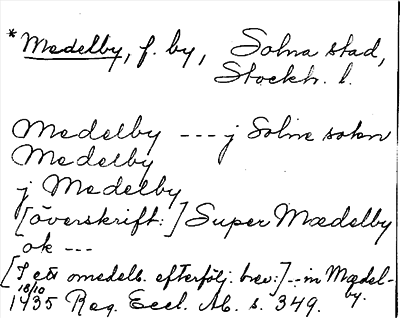 *Medelby, f. by, Solna stad,
Stockh. l.
Medelby --- j Solne sokn
Medelby
j Medelby
[överskrift:] Super Mædelby
ok ---
[I ett omedelb. efterfölj. brev:]--in Mædel-
by.
18/10
1435 Reg. Eccl. Ab. s. 349.